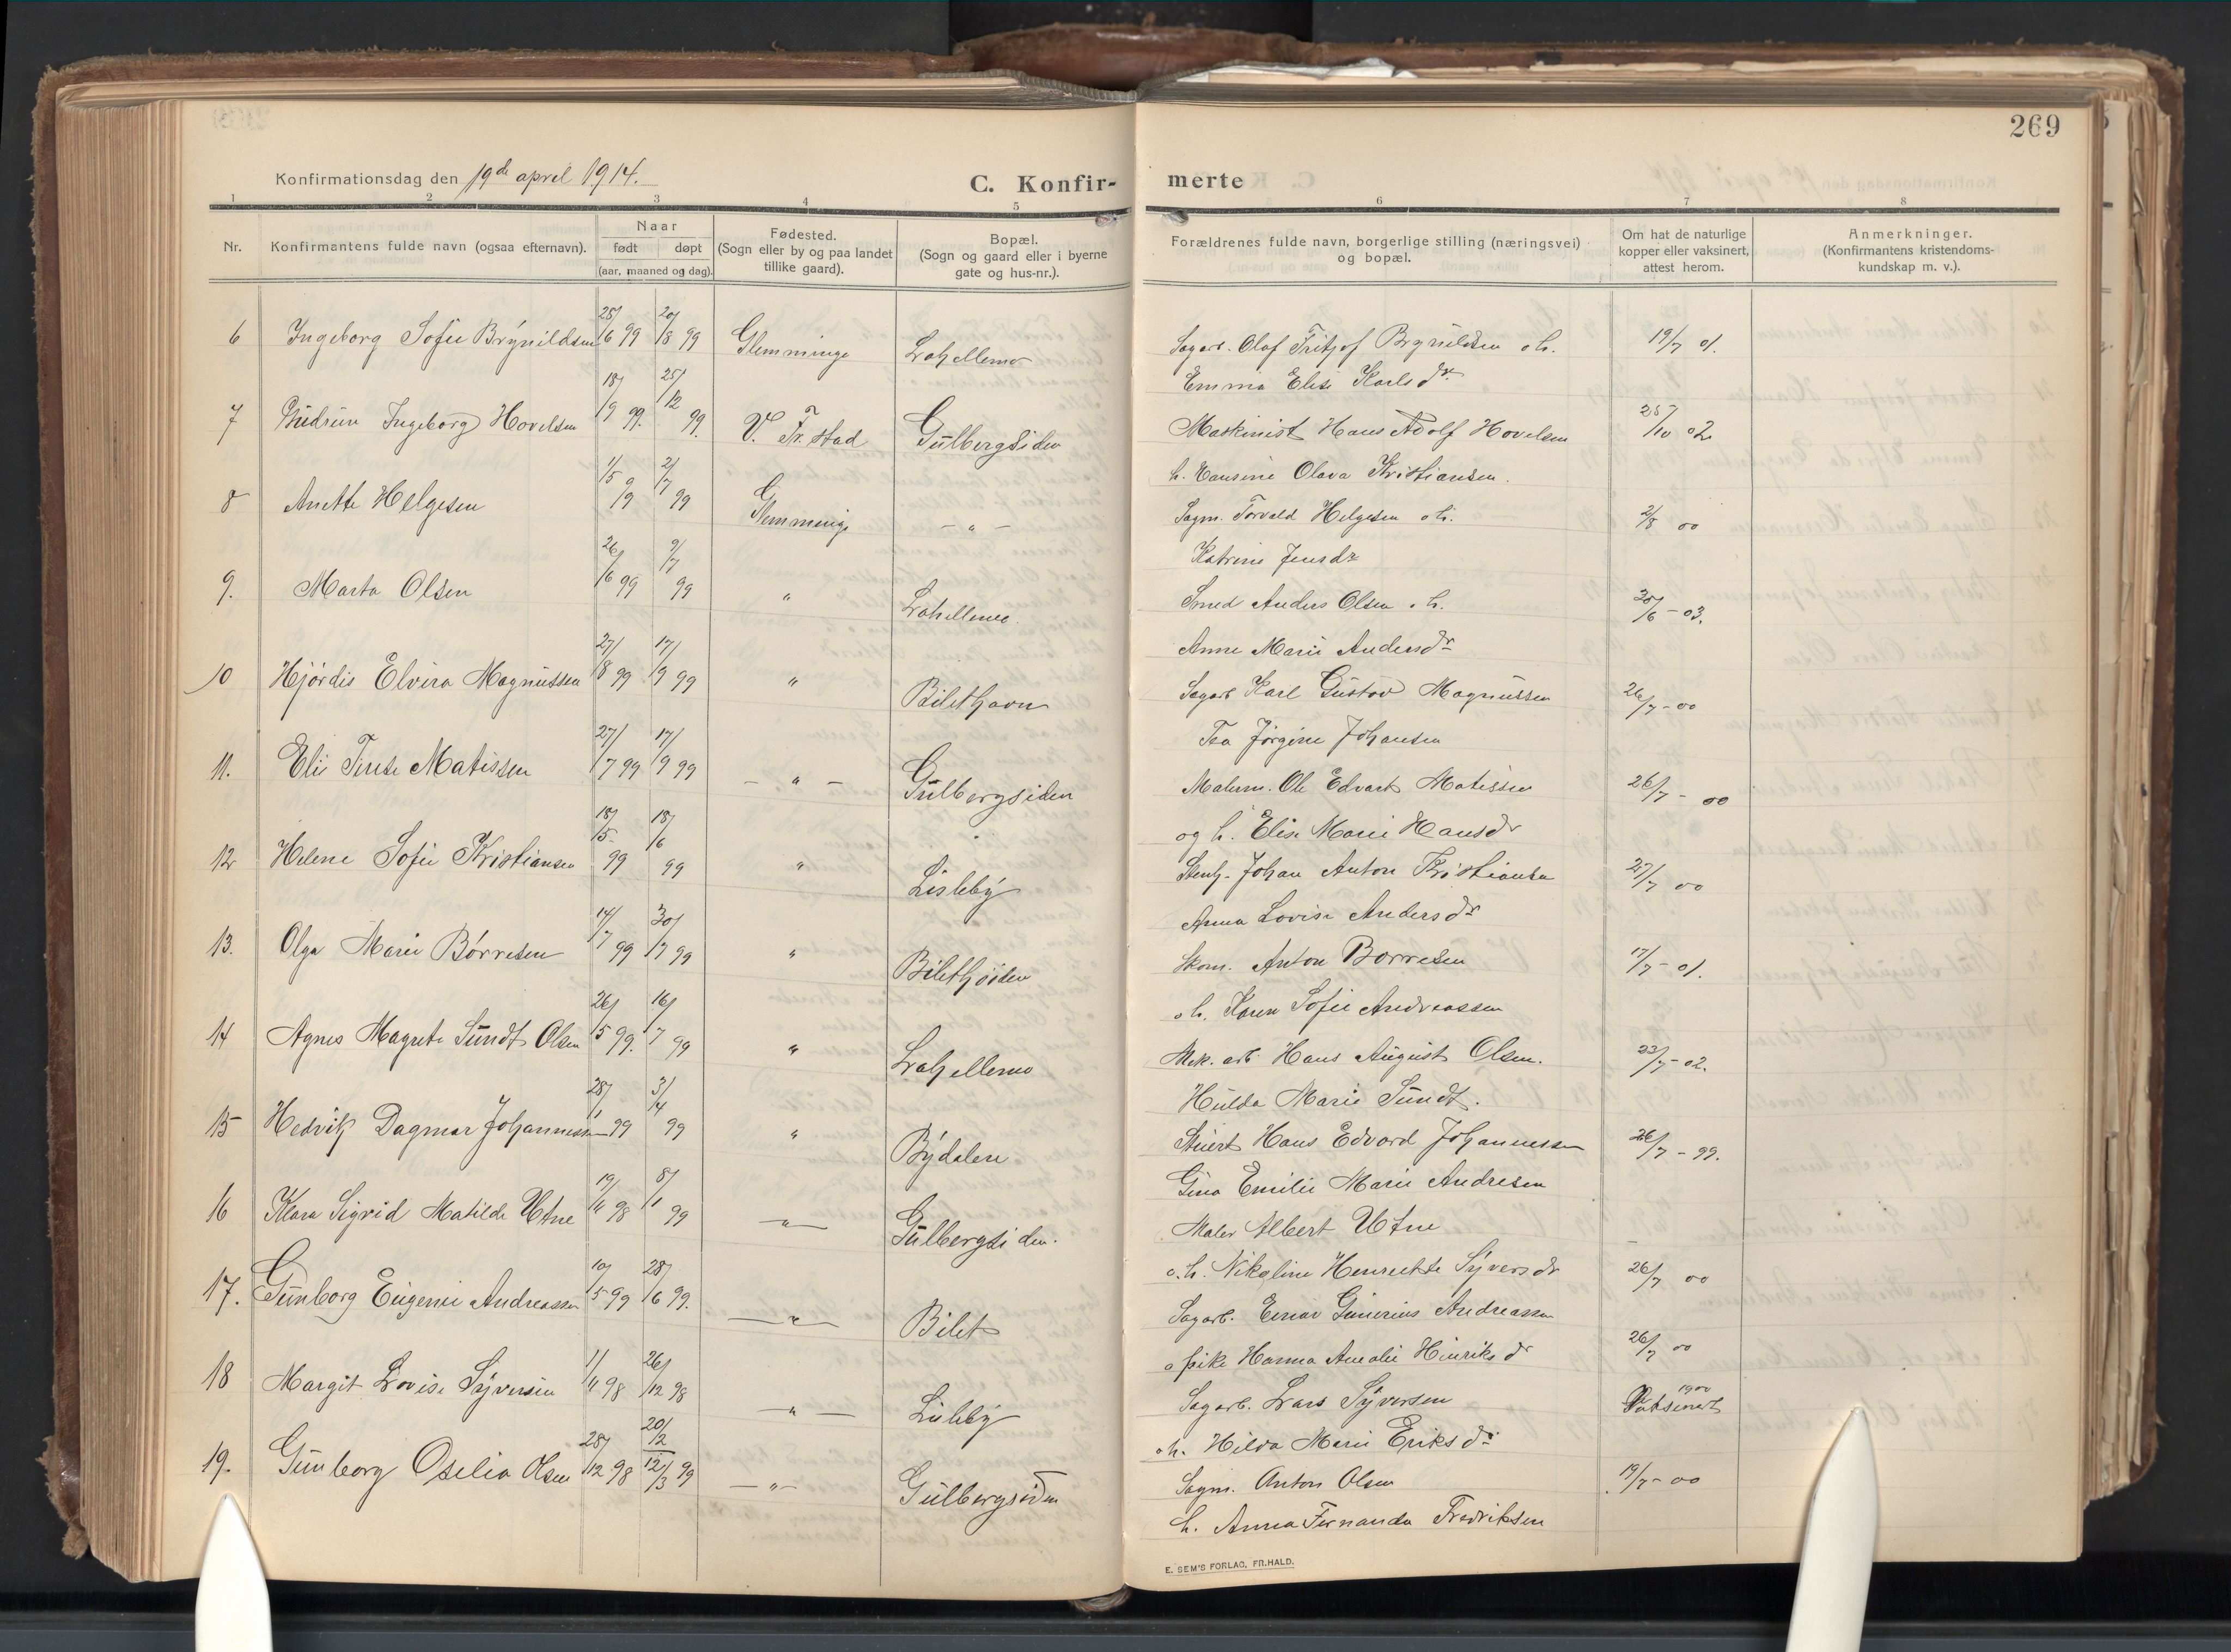 269
Konfirmationsdag den 19de april 1914.
C. Konfir-
merte
1 2 3 4 5 6 7 8
Nr.
Konfirmantens fulde navn (ogsaa efternavn).
Naar
født døpt
(aar, maaned og dag).
Fødested.
(Sogn eller by og paa landet
tillike gaard).
Bopæl.
(Sogn og gaard eller i byerne
gate og hus-nr.).
Forældrenes fulde navn, borgerlige stilling (næringsvei)
og bopæl.
Om hat de naturlige
kopper eller vaksinert,
attest herom.
Anmerkninger.
(Konfirmantens kristendoms-
kundskap m. v.).
6 Ingeborg Sofie Brynildsen 25/6 99 20/8 99 Glemminge Lahellemo Sagarb. Olaf Fritjof Brynildsen o h. 19/7 01.
Emma Elise Karlsdr.
7 Gudrun Ingeborg Hovelsen 18/9 99. 25/12 99. V. Fr.stad Gulbergsiden Maskinist Hans Adolf Hovelsen 25/10 02
h. Hansine Olava Kristiansen.
8 Anette Helgesen 1/5 99 2/7 99 Glemminge — " — Sagm. Torvald Helgesen o h. 2/8 00
Katrine Jensdr
9. Marta Olsen 26/6 99 9/7 99 " Lahellemo Smed Anders Olsen o h. 25/6 - 03.
Anne Marie Andersdr
10 Hjørdis Elvira Magnussen 27/8 99 17/9 99 " Bilethavn Sagarb Karl Gustav Magnussen 26/7 - 00
Tea Jørgine Johansen
11. Eli Terese Matissen 27/7 99 17/9 99 — " — Gulbergsiden Malerm. Ole Edvart Matissen 26/7 - 00
og h. Elise Marie Hansdr
12 Helene Sofie Kristiansen 18/5 99 18/6 99 " Lisleby Stenh. Johan Anton Kristiansen 27/7 00
Anna Lovise Andersdr
13. Olga Marie Børresen 14/7 99 30/7 99 " Bilethøiden Skom. Anton Børresen 17/7 - 01.
o h. Karen Sofie Andreassen
14 Agnes Magrete Sundt Olsen 26/5 99. 16/7 99 " Lahellemo Mek. arb Hans August Olsen. 23/7 - 02.
Hulda Marie Sundt.
15 Hedvik Dagmar Johannessen 28/1 99 3/4 99 " Bydalen Stuert Hans Edvard Johannessen 26/7 - 99.
Gina Emilie Marie Andresen
16 Klara Sigrid Matilde Utne 19/11 98 8/1 99 — " — Gulbergsiden. Maler Albert Utne
o. h. Nikoline Henriette Syversdr 26/7 00
17. Gunborg Eugenie Andreassen 10/5 99 28/6 99. — " — Bilet Sagarb. Einar Gunerius Andreassen
o pike Hanna Amalie Hinriksdr 26/7 00
18 Margit Lovise Syversen 1/11 98 26/12 98 — " — Lisleby Sagarb. Lars Syversen Vaksinert 1900
o h. Hilda Marie Eriksdr
19. Gunborg Oselia Olsen 28/12 98 20/2 12/3 99 — " — Gulbergsiden Sagm. Anton Olsen 19/7 - 00
h. Anna Fernanda Fredriksen
E. SEM'S FORLAG, FR.HALD.